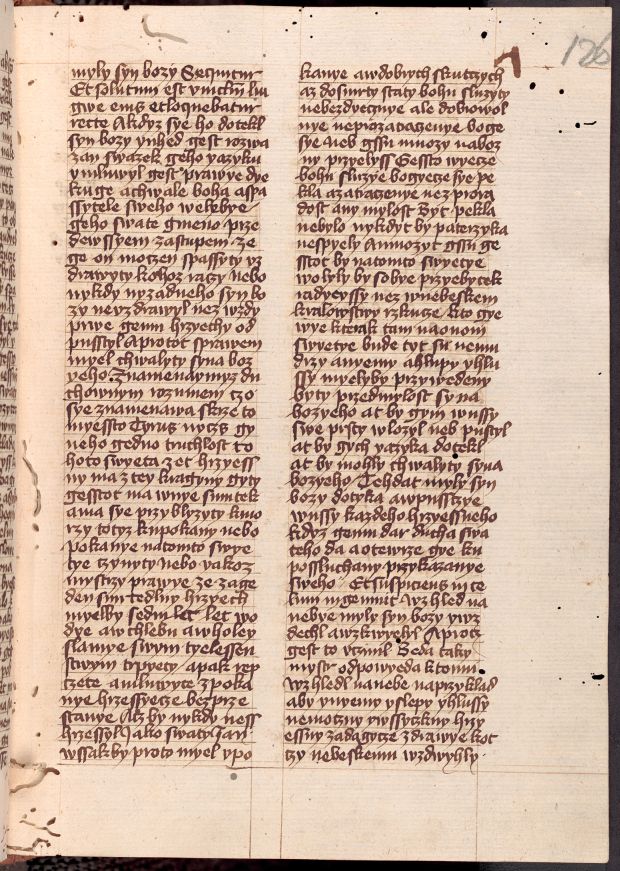 126
myly syn bozy Sequitur
Et solutum est vinclm lin
gwe eius et loquebatur
recte A kdyz sye ho dotekl
syn bozy ynhed gest rozwa
zan swazek geho yazyku
y mluwyl gest prawye dye
kuge a chwale boha a spa
ssytele sweho welebye
geho swate gmeno prze
dewssyem zastupem ze
ge on moczen spassyty vz
drawyty kohoz raczy nebo
nykdy nyzadneho syn bo
zy nevzdrawyl nez wzdy
prwe genu hrzyechy od
pustyl A protoz sprawem
myel chwalyty syna boz
yeho Znamenaymyz du
chownym rozumem czo
sye znamenawa skrze to
myessto Tyrus nyczs gy
neho gedno truchlost to
hoto swyeta z et hrzyess
ny ma z tey kraginy gyty
gesstot ma wnye smutek
a ma sye przyblyzyty k mo
rzy totyz ku pokany nebo
pokanye na tomto swye
tye czynyty nebo yakoz
mrstczy prawye ze za ge
den smrtedlny hrzyech
myelby sedm let let wo
dye a w chlebu a w holey
slamye swym tyelessen
stwym trpyety a pak rep
tczete a mluwyte z poka
nye hrzessyecze bez prze
stanye Aczby nykdy ness
hrzessyl Jako swaty Jan
wssakby proto myel v po
kanye a w dobrych skutczych
az do smrty staty bohu sluzyty
ne bezdyecznye ale dobrowol
nye ne pro zatraczenye boge
sye neb gssu mnozy naboz
ny przyelyss Gessto wyecze
bohu sluzye bogyecze sye pe
kla a zatraczenye nez pro ra
dost any mylost Byt pekla
nebylo nykdyt by paterzyka
nespyely A mnozyt gssu ge
sstot by na tomto swyetye
wolyly by sobye przyebytek
radyeyssy nez w nebeskem
kralowstwy rzkucze kto gye
wye kterak tam na onom
swyetye bude tyt su nemu
drzy a nyemy a hlupy y hlu
ssy myelyby przywedeny
byty przed mylost syna
bozyeho at by gym w ussy
swe prsty wlozyl neb pustyl
at by gych yazyka dotekl
at by mohly chwalyty syna
bozyeho Tehdat myly syn
bozy dotyka a w pusstczye
w ussy kazdeho hrzyessneho
kdyz gemu dar ducha swa
teho da a otewrze gye ku
possluchany przykazanye
sweho Et suspiciens in ce
lum ingemuit Wzhled na
nebye myly syn bozy y wz
dechl a wzkrzykl A protoz
gest to vczinil Beda taky
mystr odpowyeda k tomu
Wzhledl na nebe na przyklad
aby y nyemy y slepy y hlussy
nemoczny y wssyczkny hrzy
essny zadagycze zdrawye k ot
czy nebeskemu wzdwyhly